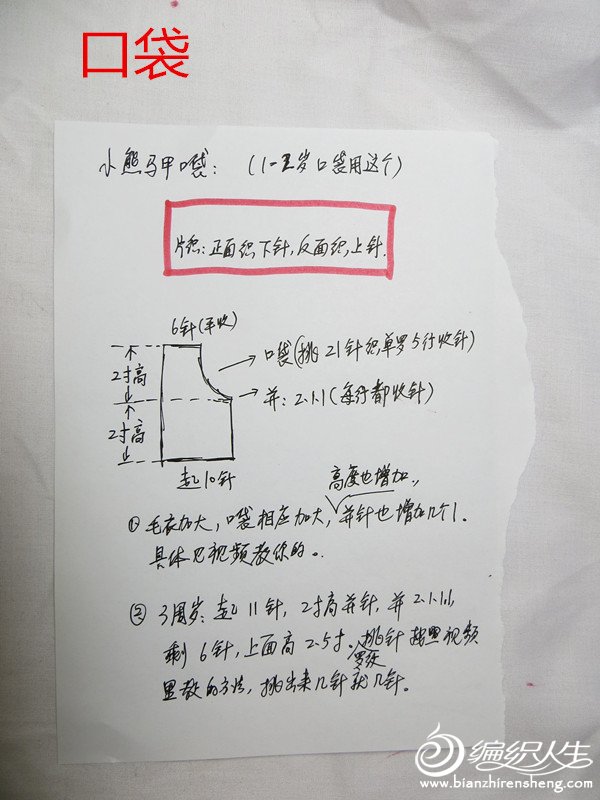 口袋
小熊马甲口袋: (1-2岁口袋用这个)
片织:正面织下针,反面织上针.
6针(平收)
2寸高
口袋(挑21针织单罗5行收针)
并:2.1.1(每行都收针)
2寸高
起10针
高度也增加,
①毛衣加大,口袋相应加大,并针也增加几个1.
具体见视频教你的。
②3周岁:起11针,2寸高并针,并2.1.1.1,
剩6针,上面高2.5寸.挑针按照视频
罗纹
里教的方法,挑出来几针就几针。
编织人生
www.bianzhirensheng.com